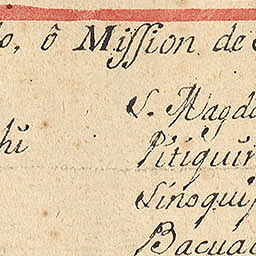 o, ô Mission de
S. Magd
hi
Pitiqui
Sinoqui
Bacua